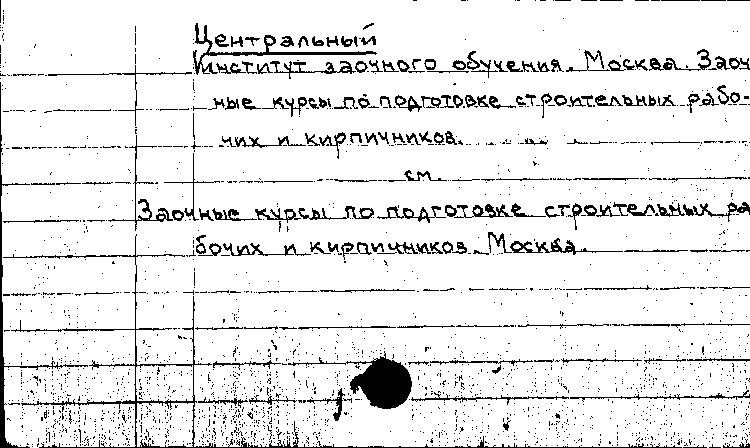 Центральный
институт заочного обучения. Москва. Заоч
ные курсы по подготовке строительных рабо-
чих и кирпичников.
см.
Заочные курсы по подготовке строительных ра
бочих и кирпичников. Москва.